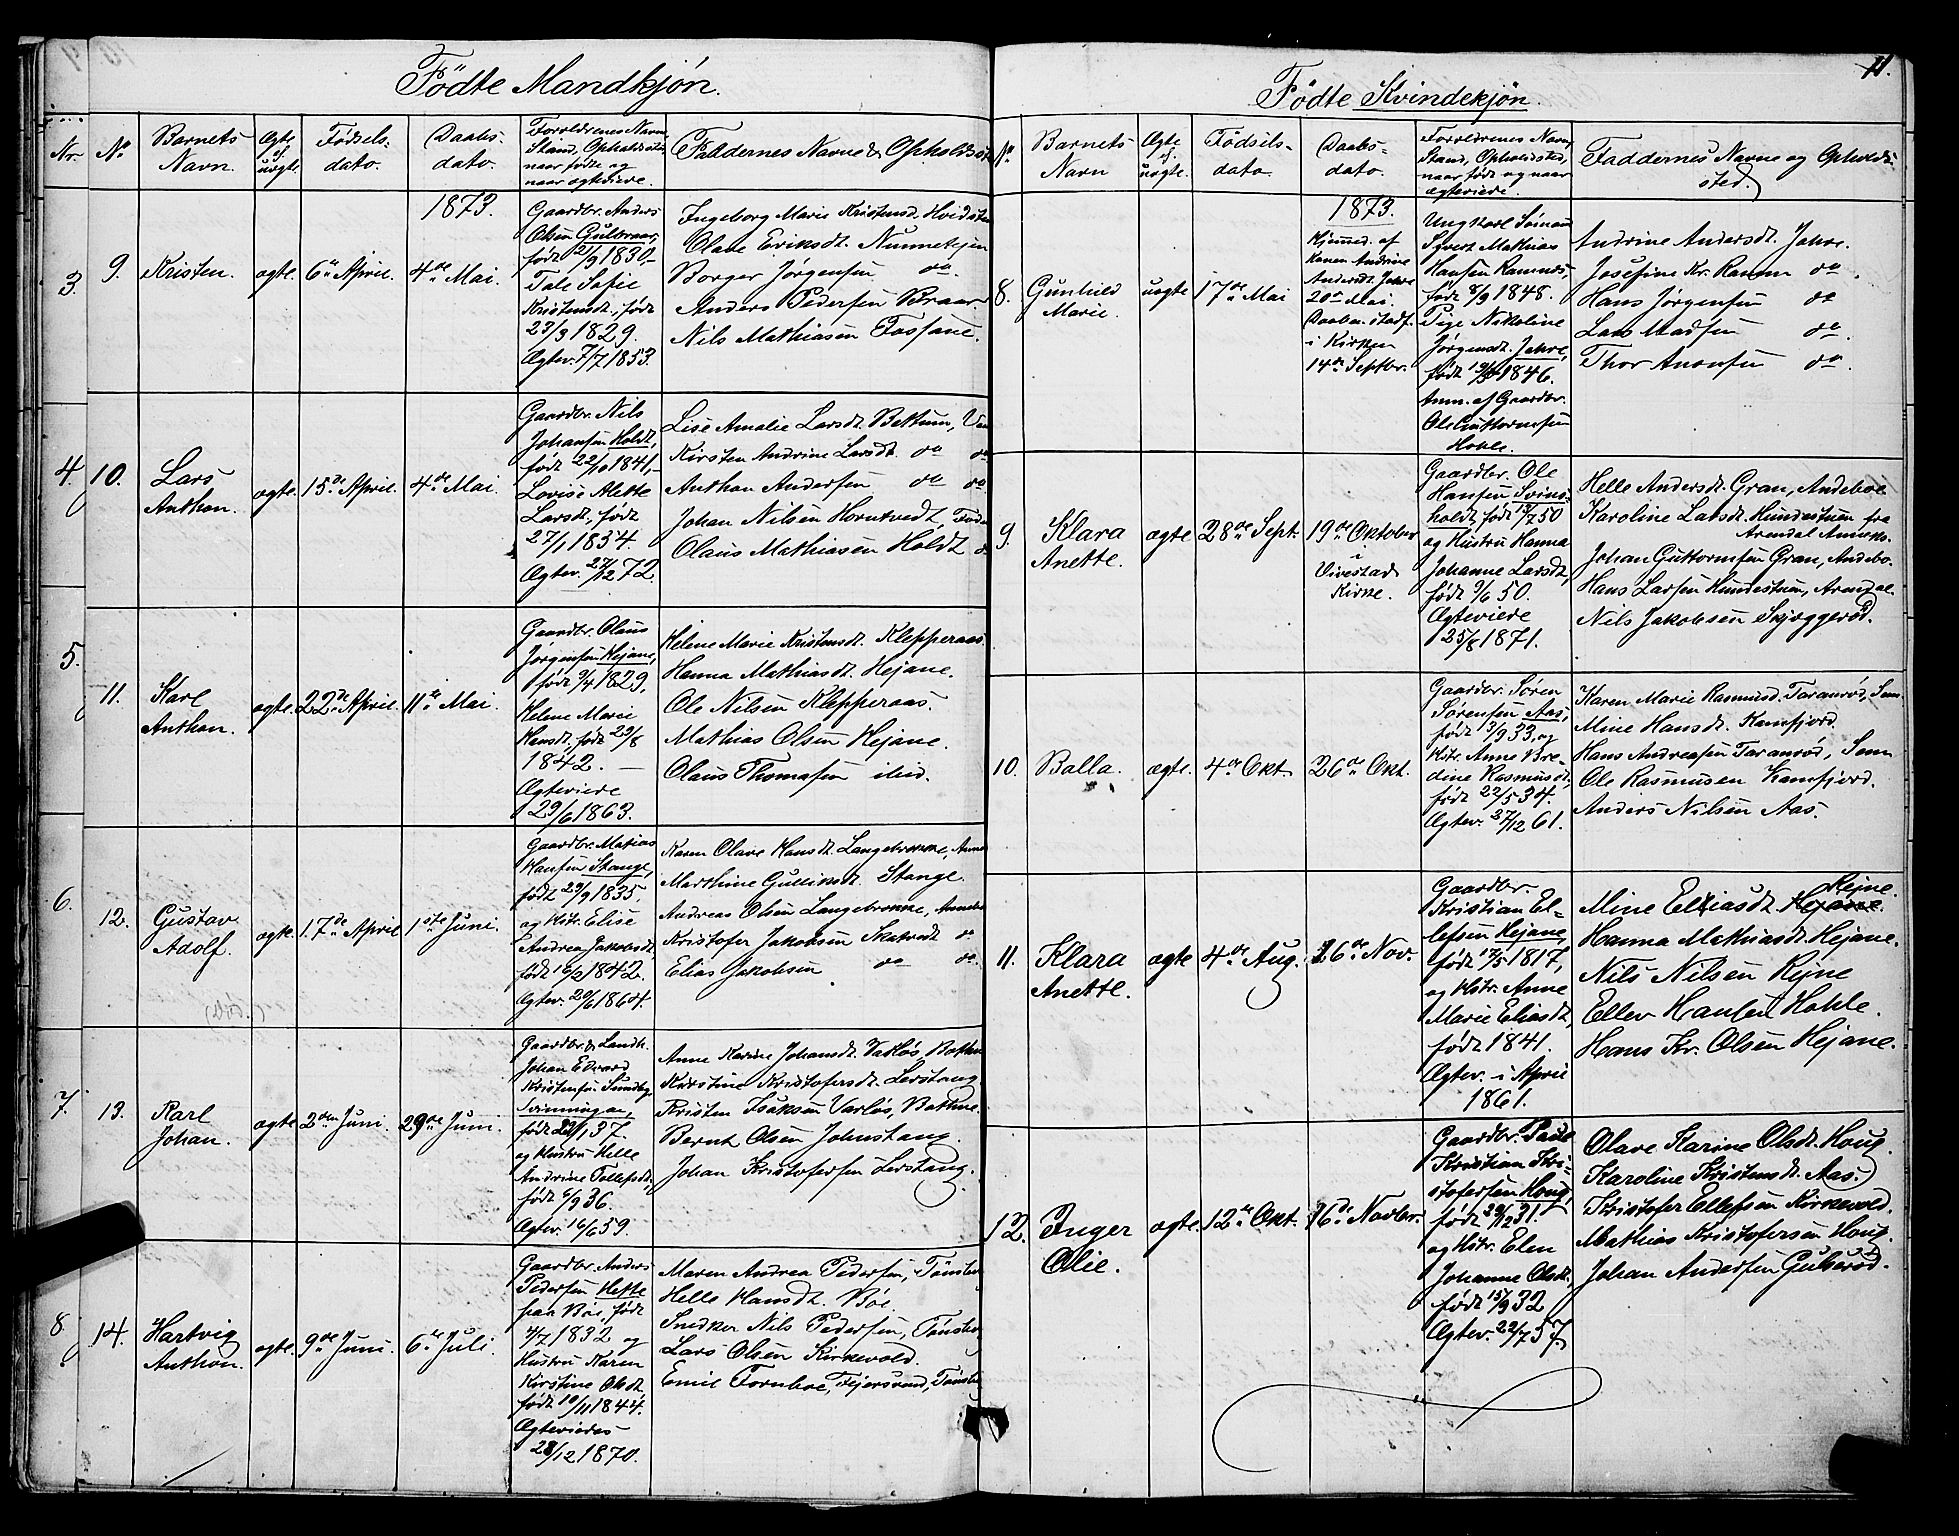 Födte Mandkjön.
Nr. No Barnets Navn. Ægte ell. uægte. Fødsels- dato. Daabs- dato. Forældrenes Navn, Stand, Opholdssted, naar födte og naar ægteviede. Faddernes Navne & Opholdssted
1873.
3. 9. Kristen. ægte. 6te April. 4de Mai.
Gaardbr. Anders
Olsen Gulsraar,
født 12/9 1830,
Tale Sofie
Kristensdt., født
23/3 1829.
Ægtev. 7/7 1853.
Ingeborg Marie Kristensd. Hvidsten
Olave Eriksdt. Nunnetsjen
Borger Jörgensen do.
Anders Pedersen Braar
Nils Mathiasen Fossane.
4. 10. Lars Anthon. ægte. 15de April. 4de Mai.
Gaardbr. Nils
Johansen Holdt,
født 22/10 1841,
Lovise Alette
Larsdt, født
27/1 1854.
Ægtev. 27/12 72.
Lise Amalie Larsdt. Bettum,
Kirsten Andrine Larsdt. do do
Anthon Andersen do do
Johan Nilsen Horntvedt,
Olaus Mathiasen Holdt
5. 11. Karl Anthon. ægte. 22de April. 11te Mai.
Gaardbr. Olaus
Jørgensen Hejane,
født 9/4 1829,
Helene Marie
Hansdt. født 29/8
1842.
Ægteviede
29/6 1863.
Helene Marie Kristensdt. Klepperaas.
Hanna Mathiasdt. Hejane.
Ole Nilsen Klepperaas.
Mathias Olsen Hejane.
Olaus Thomasen ibid.
6. 12. Gustav Adolf. ægte. 17de April 1ste Juni.
(Död.)
Gaardbr. Matias
Hansen Stange,
født 29/9 1835,
og Hstr. Elise
Andrea Jakobsdt.
født 16/2 1842.
Ægtev. 20/6 1864.
Karen Olave Hansdt. Langebrække,
Marthine Gulliksdt. Stange.
Andreas Olsen Langebrække,
Kristofer Jakobsen Skatvedt do
Elias Jakobsen do do.
7. 13. Karl Johan. ægte 2den Juni. 29de Juni.
Gaardbr. & Landh.
Johan Edvard
Kristensen Sundby
Svinningen,
født 23/1 37.
og Hustru Helle
Andrine Tollefsdt.
født 6/9 36.
Ægtev. 16/6 59.
Anne Karine Johansdt. Varløs, Bothne
Karstine Kristofersdt. Lerstang.
Kristen Isaksen Varløs, Bothne.
Bernt Olsen Johnstang.
Johan Kristofersen Lerstang.
8. 14. Hartvig Anthon. ægte. 9de Juni. 6te Juli.
Gaardbr. Anders
Pedersen Hette
paa Böe, født
4/7 1832 og
Hustru Karen
Kirstine Olsdt.
født 10/11 1844.
Ægteviedes
28/12 1870.
Maren Andrea Pedersen, Tönsb
Helle Hansdt. Böe.
Snedker Nils Pedersen, Tönsb
Lars Olsen Kirkevold.
Emil Fornboe, Fejersvend, Tönsb
11.
Födte Kvindekjön.
No Barnets Navn Ægte ell. uægte. Födsels- dato. Daabs- dato. Forældrenes Navn, Stand, Opholdssted, naar födt og naar ægteviede. Faddernes Navne og Opholds- sted.
1873.
8. Gunhild Marie. uægte 17de Mai
Hjemmed. af
Konen Andrine
Andersdt. Jahre
20de Mai.
Daaben stadf.
i Kirken
14de Septbr.
Ungkarl Simon
Syvert Mathias
Hansen Ramnes,
født 8/9 1848.
Pige Nikoline
Jørgensdt. Jahre,
født 1846.
Anm. af Gaardbr.
Ole Guttormsen
Hohle.
Andrine Andersdt. Jahre.
Josefine Kr. Ramm do.
Hans Jørgensen do
Lars Madsen do.
Thor Anonsen do.
9. Klara Anette. ægte 28de Sept. 19de Oktober i Vivestad Kirke.
Gaardbr. Ole
Hansen Svins-
holdt, født 13/7 50
og Hustru Hanna
Johanne Larsdt,
født 9/6 50.
Ægteviede
25/8 1871.
Helle Andersdt. Gran, Andeboe
Karoline Larsdt. Hundestuen fra
Arendal Annexs.
Johan Guttormsen Gran, Andebo.
Hans Larsen Hundestuen, Arendal.
Nils Jakobsen Skjæggerød.
10. Balla. ægte. 4de Okt. 26de Okt.
Gaardbr. Søren
Sørensen Aas,
født 13/9 33, og
Hstr. Anne Bre-
dine Rasmusdt.
født 22/5 34.
Ægtev. 27/12 61.
Karen Marie Rasmusd. Taranrød, Sem
Mine Hansdt. Kamfjord.
Hans Andreasen Taranrød, Sem
Ole Rasmusen Kamfjord.
Anders Nilsen Aas.
11. Klara Anette. ægte 4de Aug. 26de Nov.
Gaardbr.
Kristian El-
lefsen Hejane,
født 17/5 1817,
og Hstr. Anne
Marie Eliasdt,
født 1841.
Ægtev. i April
1861.
Rejne.
Mine Eliasdt. Hejane.
Hanna Mathiasdt. Hejane.
Nils Nilsen Rejne
Ellev Hansen Hohle.
Hans Kr. Olsen Hejane.
12. Inger Olie. ægte. 12te Okt. 16de Novbr.
Gaardbr. Paul
Kristian Kri-
stofersen Houg,
født 29/12 31.
og Hstr. Elen
Johanne Olsdt.
født 15/9 32
Ægtev. 22/7 57.
Olave Karine Olsdt. Houg.
Karoline Kristensdt. Aas.
Kristofer Ellefsen Kirkevold.
Mathias Kristofersen Houg.
Johan Andersen Gulserød.